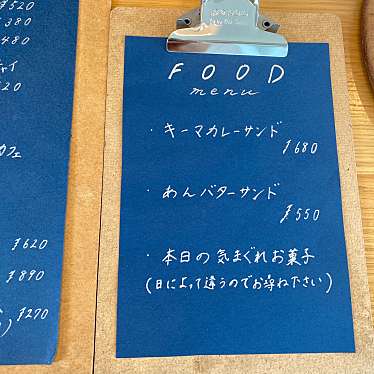 ¥520
380
480
チャイ
カフェ
¥620
¥890
¥270
FOOD
menu
・キーマカレーサンド
¥680
・あんバターサンド
¥550
・本日の気まぐれお菓子
(日によって違うのでお尋ね下さい)